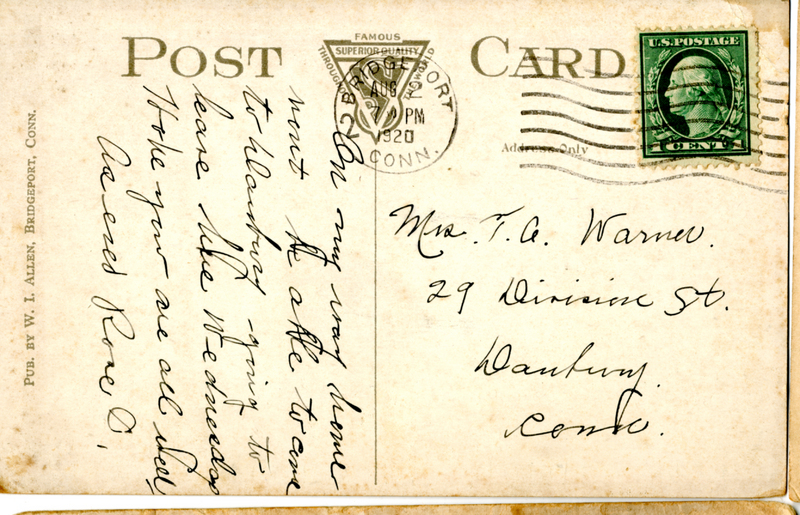 POST CARD
FAMOUS
SUPERIOR QUALITY
THROUGHOUT
WORLD
BRIDGEPORT
AUG
PM
1920
CONN.
U.S. POSTAGE
1 CENT 1
Address Only
PUB. BY W. I. ALLEN, BRIDGEPORT, CONN.
On my way home
wont be able to come
to Danbury going to
leave here Wednesday
Hope you are all well
As ever Rose D.
Mrs. T. A. Warner.
29 Division St.
Danbury.
Conn.